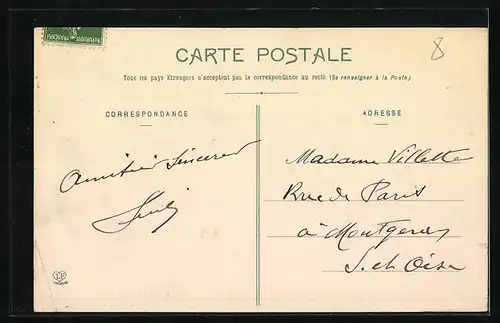 RÉPUBLIQUE FRANÇAISE
8
CARTE POSTALE
Tous les pays Etrangers n'acceptent pas la correspondance au recto (Se renseigner à la Poste)
CORRESPONDANCE
ADRESSE
Amitiés Sincères
Madame Villette
Rue de Paris
à Montgeron
S. et Oise